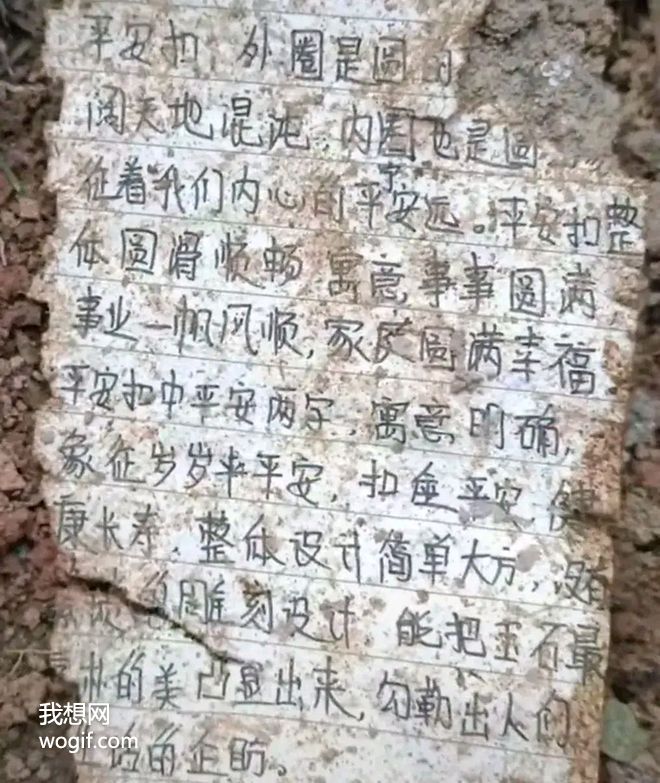 平安扣,外圈是圆的
阔天地混沌,内圈也是圆
征着我们内心的平宁安远。平安扣整
体圆滑顺畅 寓意事事圆满
事业一帆风顺,家庭圆满幸福.
平安扣中平安两字,寓意明确,
象征岁岁平安,扣佡平安,健
康长寿.整体设计简单大方,
雕刻设计 能把玉石最
的美凸显出来,勾勒出人们
的企盼。
我想网
wogif.com